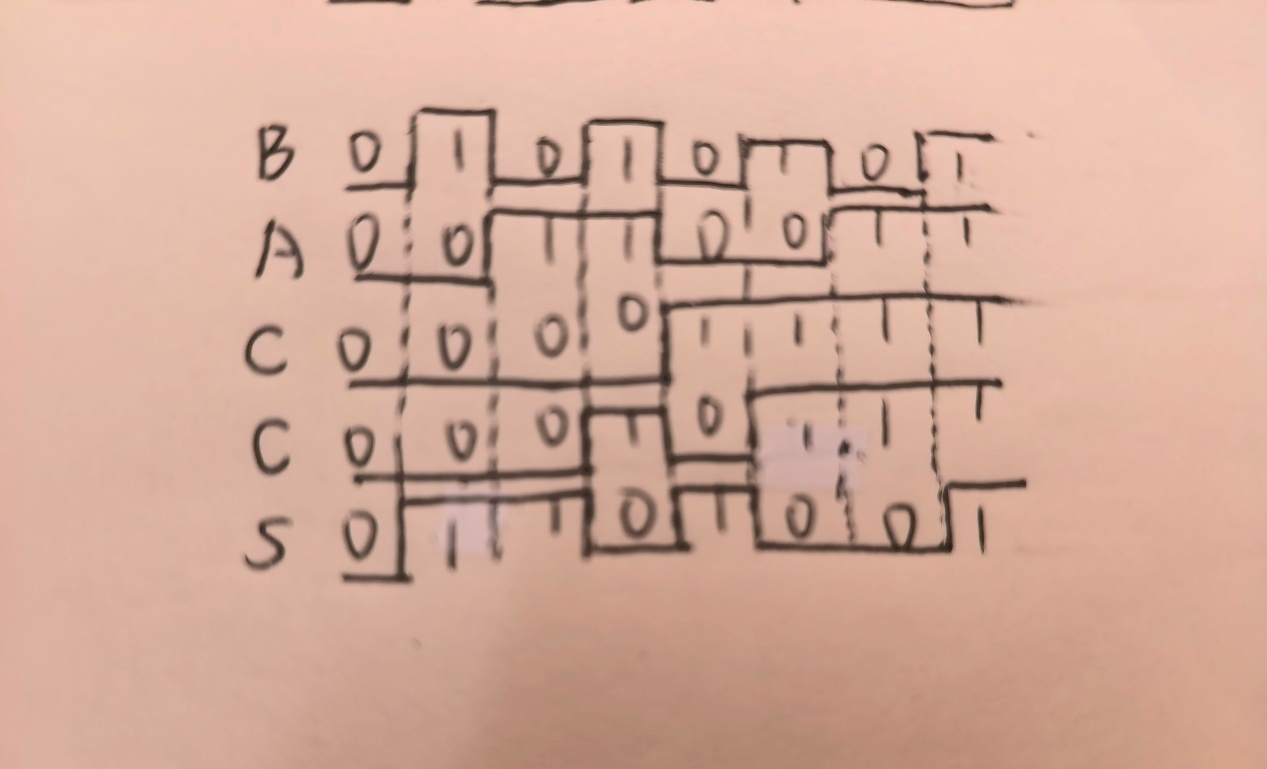 B 0 1 0 1 0 1 0 1
A 0 0 1 1 0 0 1 1
C 0 0 0 0 1 1 1 1
C 0 0 0 1 0 1 1 1
S 0 1 1 0 1 0 0 1